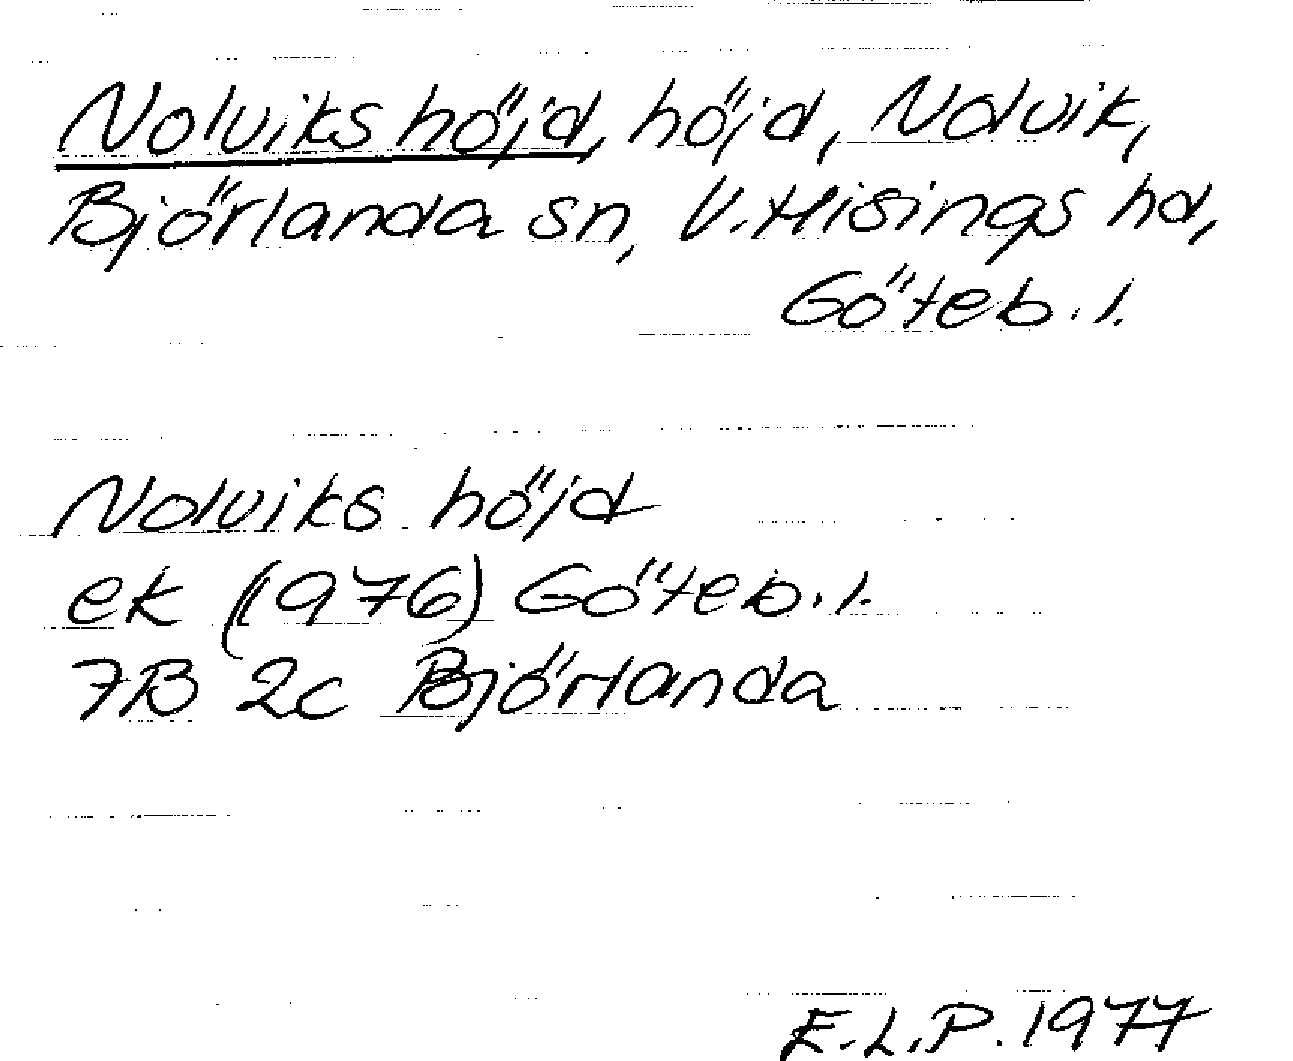 Nolviks höjd, höjd, Nolvik,
Björlanda sn, V. Hisings hd,
Göteb. l.
Nolviks höjd
ek (1976) Göteb. l.
7B 2c Björlanda
E.L.P. 1977